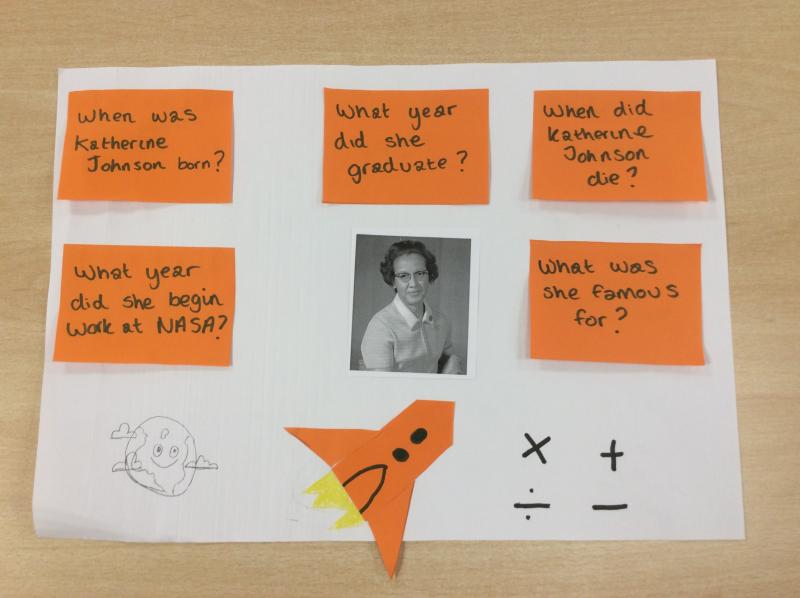 When was
Katherine
Johnson born?
What year
did she
graduate?
When did
Katherine
Johnson
die?
What year
did she begin
work at NASA?
What was
she famous
for?
× +
÷ −